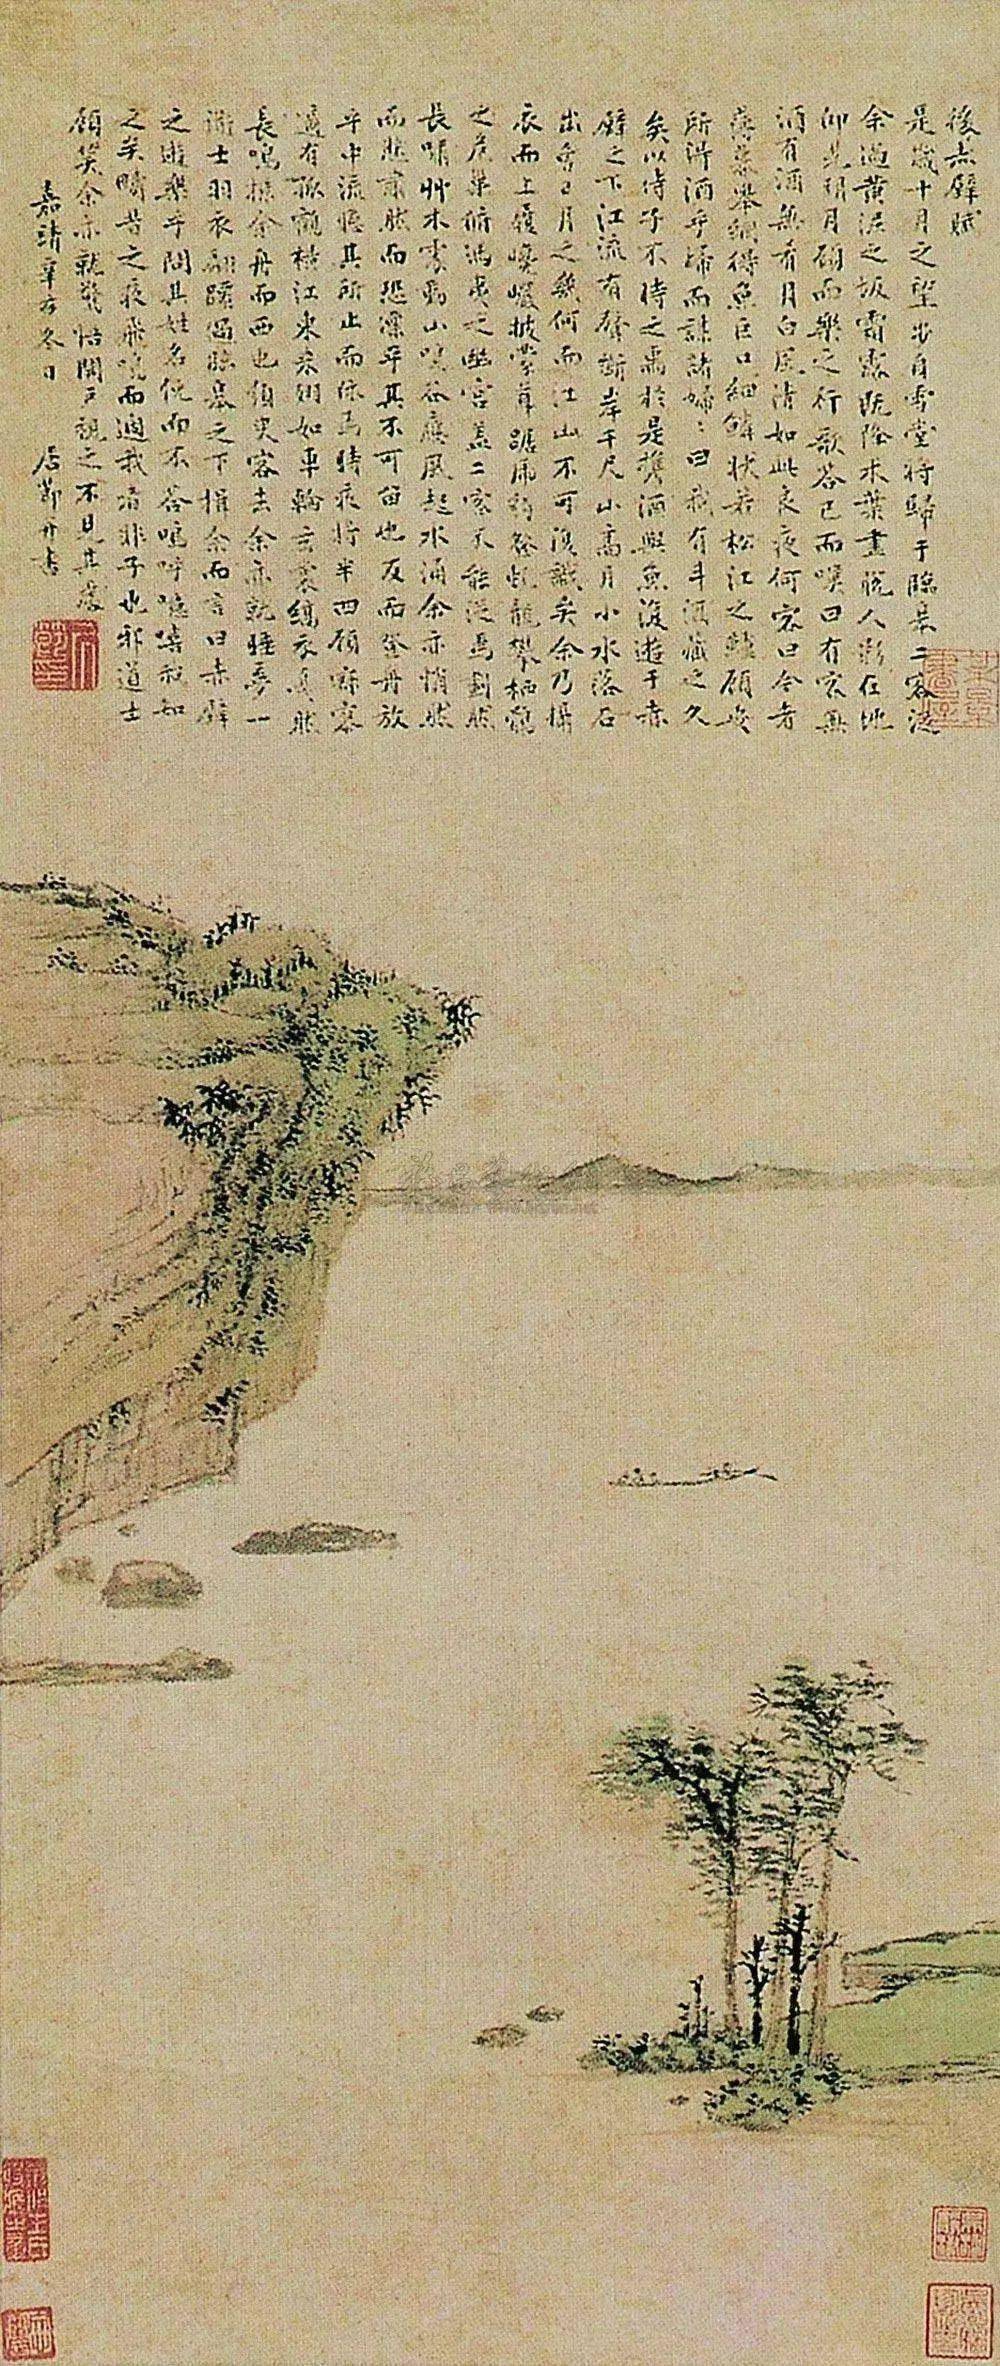 後赤壁賦
是歲十月之望步自雪堂將歸于臨皋二客從
余過黃泥之坂霜露既降木葉盡脫人影在地
仰見明月顧而樂之行歌答已而嘆曰有客無
酒有酒無肴月白風清如此良夜何客曰今者
薄暮舉網得魚巨口細鱗狀若松江之鱸顧安
所淂酒乎歸而謀諸婦〻曰我有斗酒藏之久
矣以待子不時之需於是攜酒與魚復遊于赤
壁之下江流有聲斷岸千尺山高月小水落石
出曾日月之幾何而江山不可復識矣余乃攝
衣而上履巉巖披蒙茸踞虎豹登虬龍攀栖鶻
之危巢俯馮夷之幽宮蓋二客不能從焉劃然
長嘯艸木震動山鳴谷應風起水涌余亦悄然
而悲肅然而恐凜乎其不可留也反而登舟放
乎中流聽其所止而休焉時夜將半四顧寂寥
適有孤鶴橫江東來翅如車輪玄裳縞衣戛然
長鳴掠余舟而西也須臾客去余亦就睡夢一
道士羽衣翩躚過臨皋之下揖余而言曰赤壁
之遊樂乎問其姓名俛而不答嗚呼噫嘻我知
之矣疇昔之夜飛鳴而過我者非子也邪道士
顧笑余亦就驚悟開戶視之不見其處
嘉靖辛亥冬日 居節并書